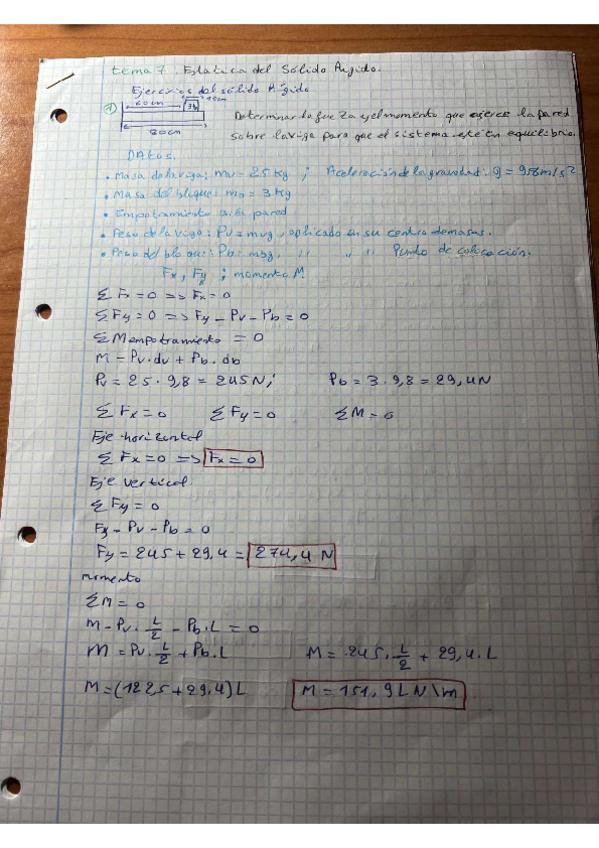 tema 7. Estática del Sólido Rígido.
Ejercicios del sólido Rígido
1 60cm 3k 10cm
80cm
Determinar la fuerza y el momento que ejerce la pared
sobre la viga para que el sistema esté en equilibrio.
DATOS.
• Masa de la viga: mv = 25 kg ; Aceleración de la gravedad: g = 9,8 m/s²
• Masa del bloque: mb = 3 kg
• Empotramiento en la pared
• Peso de la viga: Pv = mvg, aplicado en su centro de masas.
• Peso del bloque: Pb = mbg, " " " Punto de colocación.
Fx, Fy ; momento M.
Σ Fx = 0 => Fx = 0
Σ Fy = 0 => Fy - Pv - Pb = 0
Σ Mempotramiento = 0
M - Pv. dv + Pb. db
Pv = 25 · 9,8 = 245 N; Pb = 3 · 9,8 = 29,4 N
Σ Fx = 0 Σ Fy = 0 Σ M = 0
Eje horizontal
Σ Fx = 0 => Fx = 0
Eje vertical
Σ Fy = 0
Fy - Pv - Pb = 0
Fy = 245 + 29,4 = 274,4 N
momento
Σ M = 0
M - Pv · L/2 - Pb · L = 0
M = Pv · L/2 + Pb · L M = 245 · L/2 + 29,4 · L
M = (122,5 + 29,4) L M = 151,9 L N\m